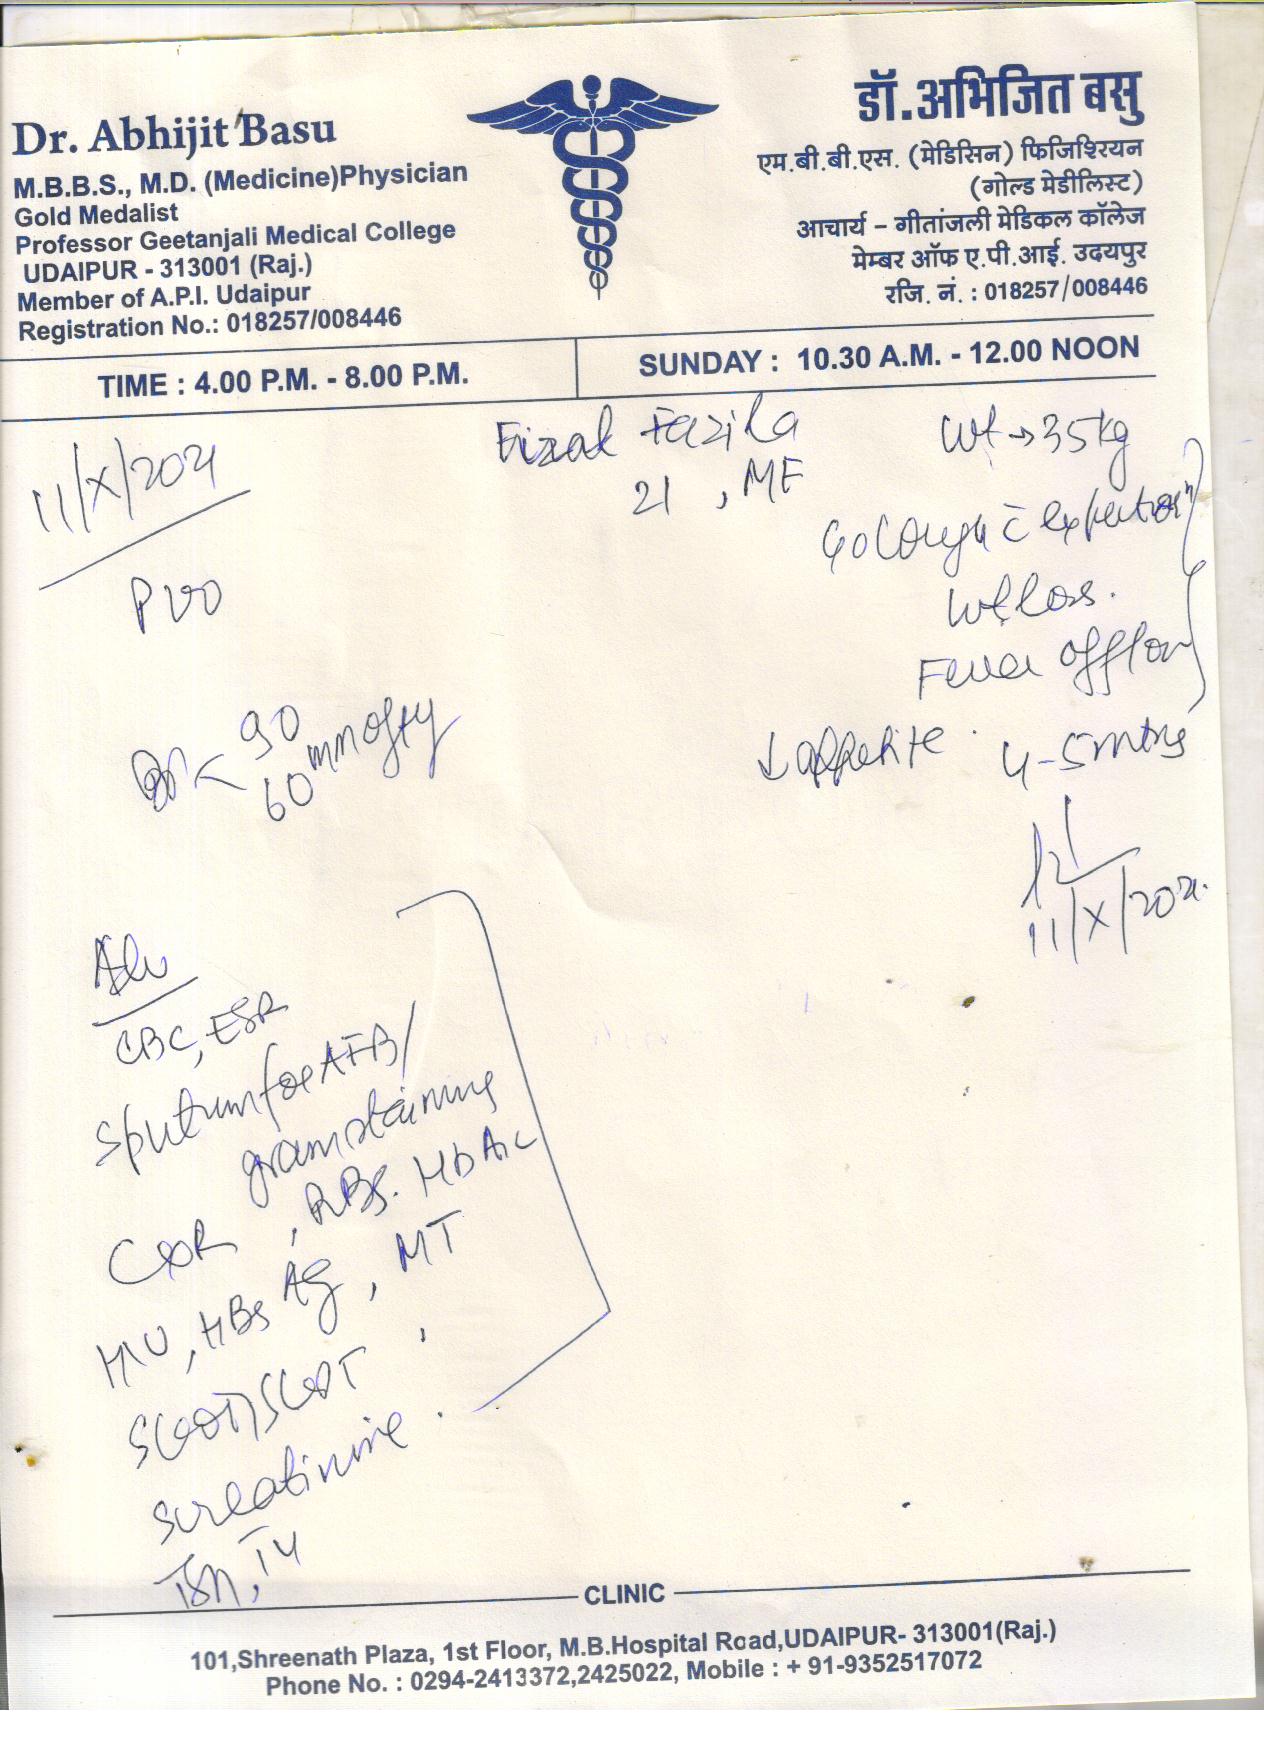 Dr. Abhijit Basu
M.B.B.S., M.D. (Medicine)Physician
Gold Medalist
Professor Geetanjali Medical College
UDAIPUR - 313001 (Raj.)
Member of A.P.I. Udaipur
Registration No.: 018257/008446
डॉ.अभिजित बसु
एम.बी.बी.एस. (मेडिसिन) फिजिश्रियन
(गोल्ड मेडीलिस्ट)
आचार्य – गीतांजली मेडिकल कॉलेज
मेम्बर ऑफ ए.पी.आई. उदयपुर
रजि. नं. : 018257/008446
TIME : 4.00 P.M. - 8.00 P.M.
SUNDAY : 10.30 A.M. - 12.00 NOON
11/X/2021
Fazila
21
Wt → 35kg
Cough c̄
Wt loss.
Fever off/on
↓ appetite
4-5 mths
11/X/2021.
90
60 mm of Hg
Adv
CBC, ESR
Sputum for AFB/
gram staining
CXR, RBS. HbA1c
HIV, HBsAg, MT
SGOT/SGPT
S creatinine.
TSH, T4
CLINIC
101,Shreenath Plaza, 1st Floor, M.B.Hospital Road,UDAIPUR- 313001(Raj.)
Phone No. : 0294-2413372,2425022, Mobile : + 91-9352517072